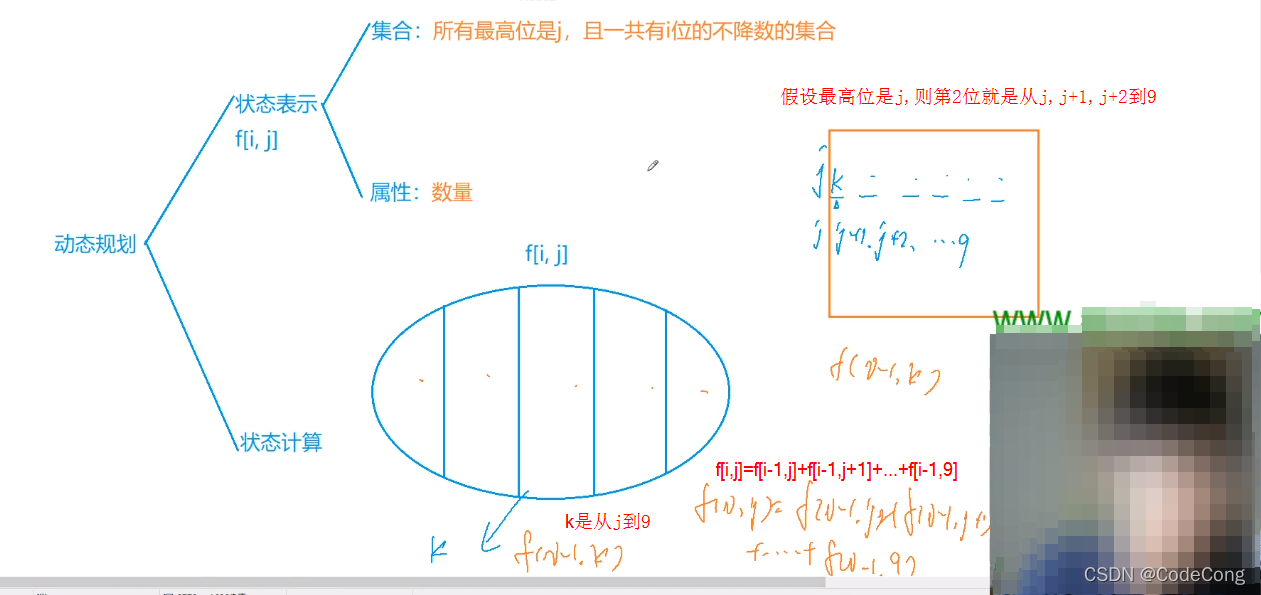 集合：所有最高位是j，且一共有i位的不降数的集合
状态表示
f[i, j]
属性：数量
动态规划
状态计算
f[i, j]
假设最高位是j,则第2位就是从j,j+1,j+2到9
j k
j j+1. j+2、…9
f(i-1,k)
f[i,j]=f[i-1,j]+f[i-1,j+1]+...+f[i-1,9]
f(i,j)= f(i-1,j)+f(i-1,j+1)
+……+ f(i-1,9)
k是从j到9
k
f(i-1,k)
www
CSDN @CodeCong